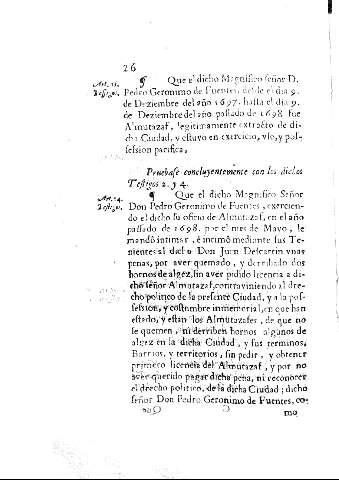 26
Art. 13.
Testigos.
¶ Que el dicho Magnifico señor D.
Pedro Geronimo de Fuentes, desde el dia 9.
de Deziembre del año 1697. hasta el dia 9.
de Deziembre del año passado de 1698 fue
Almutazaf, legitimamente extracto de di-
cha Ciudad, y estuvo en exercicio, vso, y pos-
session pacifica,
Pruebase concluyentemente con los dichos
Testigos 2. 3 4.
Art. 14.
Testigos.
¶ Que el dicho Magnifico Señor
Don Pedro Geronimo de Fuentes, exercien-
do el dicho su oficio de Almutazaf, en el año
passado de 1698. por el mes de Mayo, le
mandò intimar, è intimò mediante sus Te-
nientes al dicho Don Juan Descartin vnas
penas, por aver quemado, y derribado dos
hornos de algez, sin aver pidido licencia a di-
cho señor Almutazaf, contraviniendo al dre-
cho politico de la presente Ciudad, y a la pos-
session, y costumbre inmemorial, en que han
estado, y estàn los Almutazafes, de que no
se quemen, ni derriben hornos algunos de
algez en la dicha Ciudad, y sus terminos,
Barrios, y territorios, sin pedir, y obtener
primero licencia del Almutazaf, y por no
aver querido pagar dicha pena, ni reconocer
el drecho politico, de la dicha Ciudad; dicho
señor Don Pedro Geronimo de Fuentes, co-
C
mo